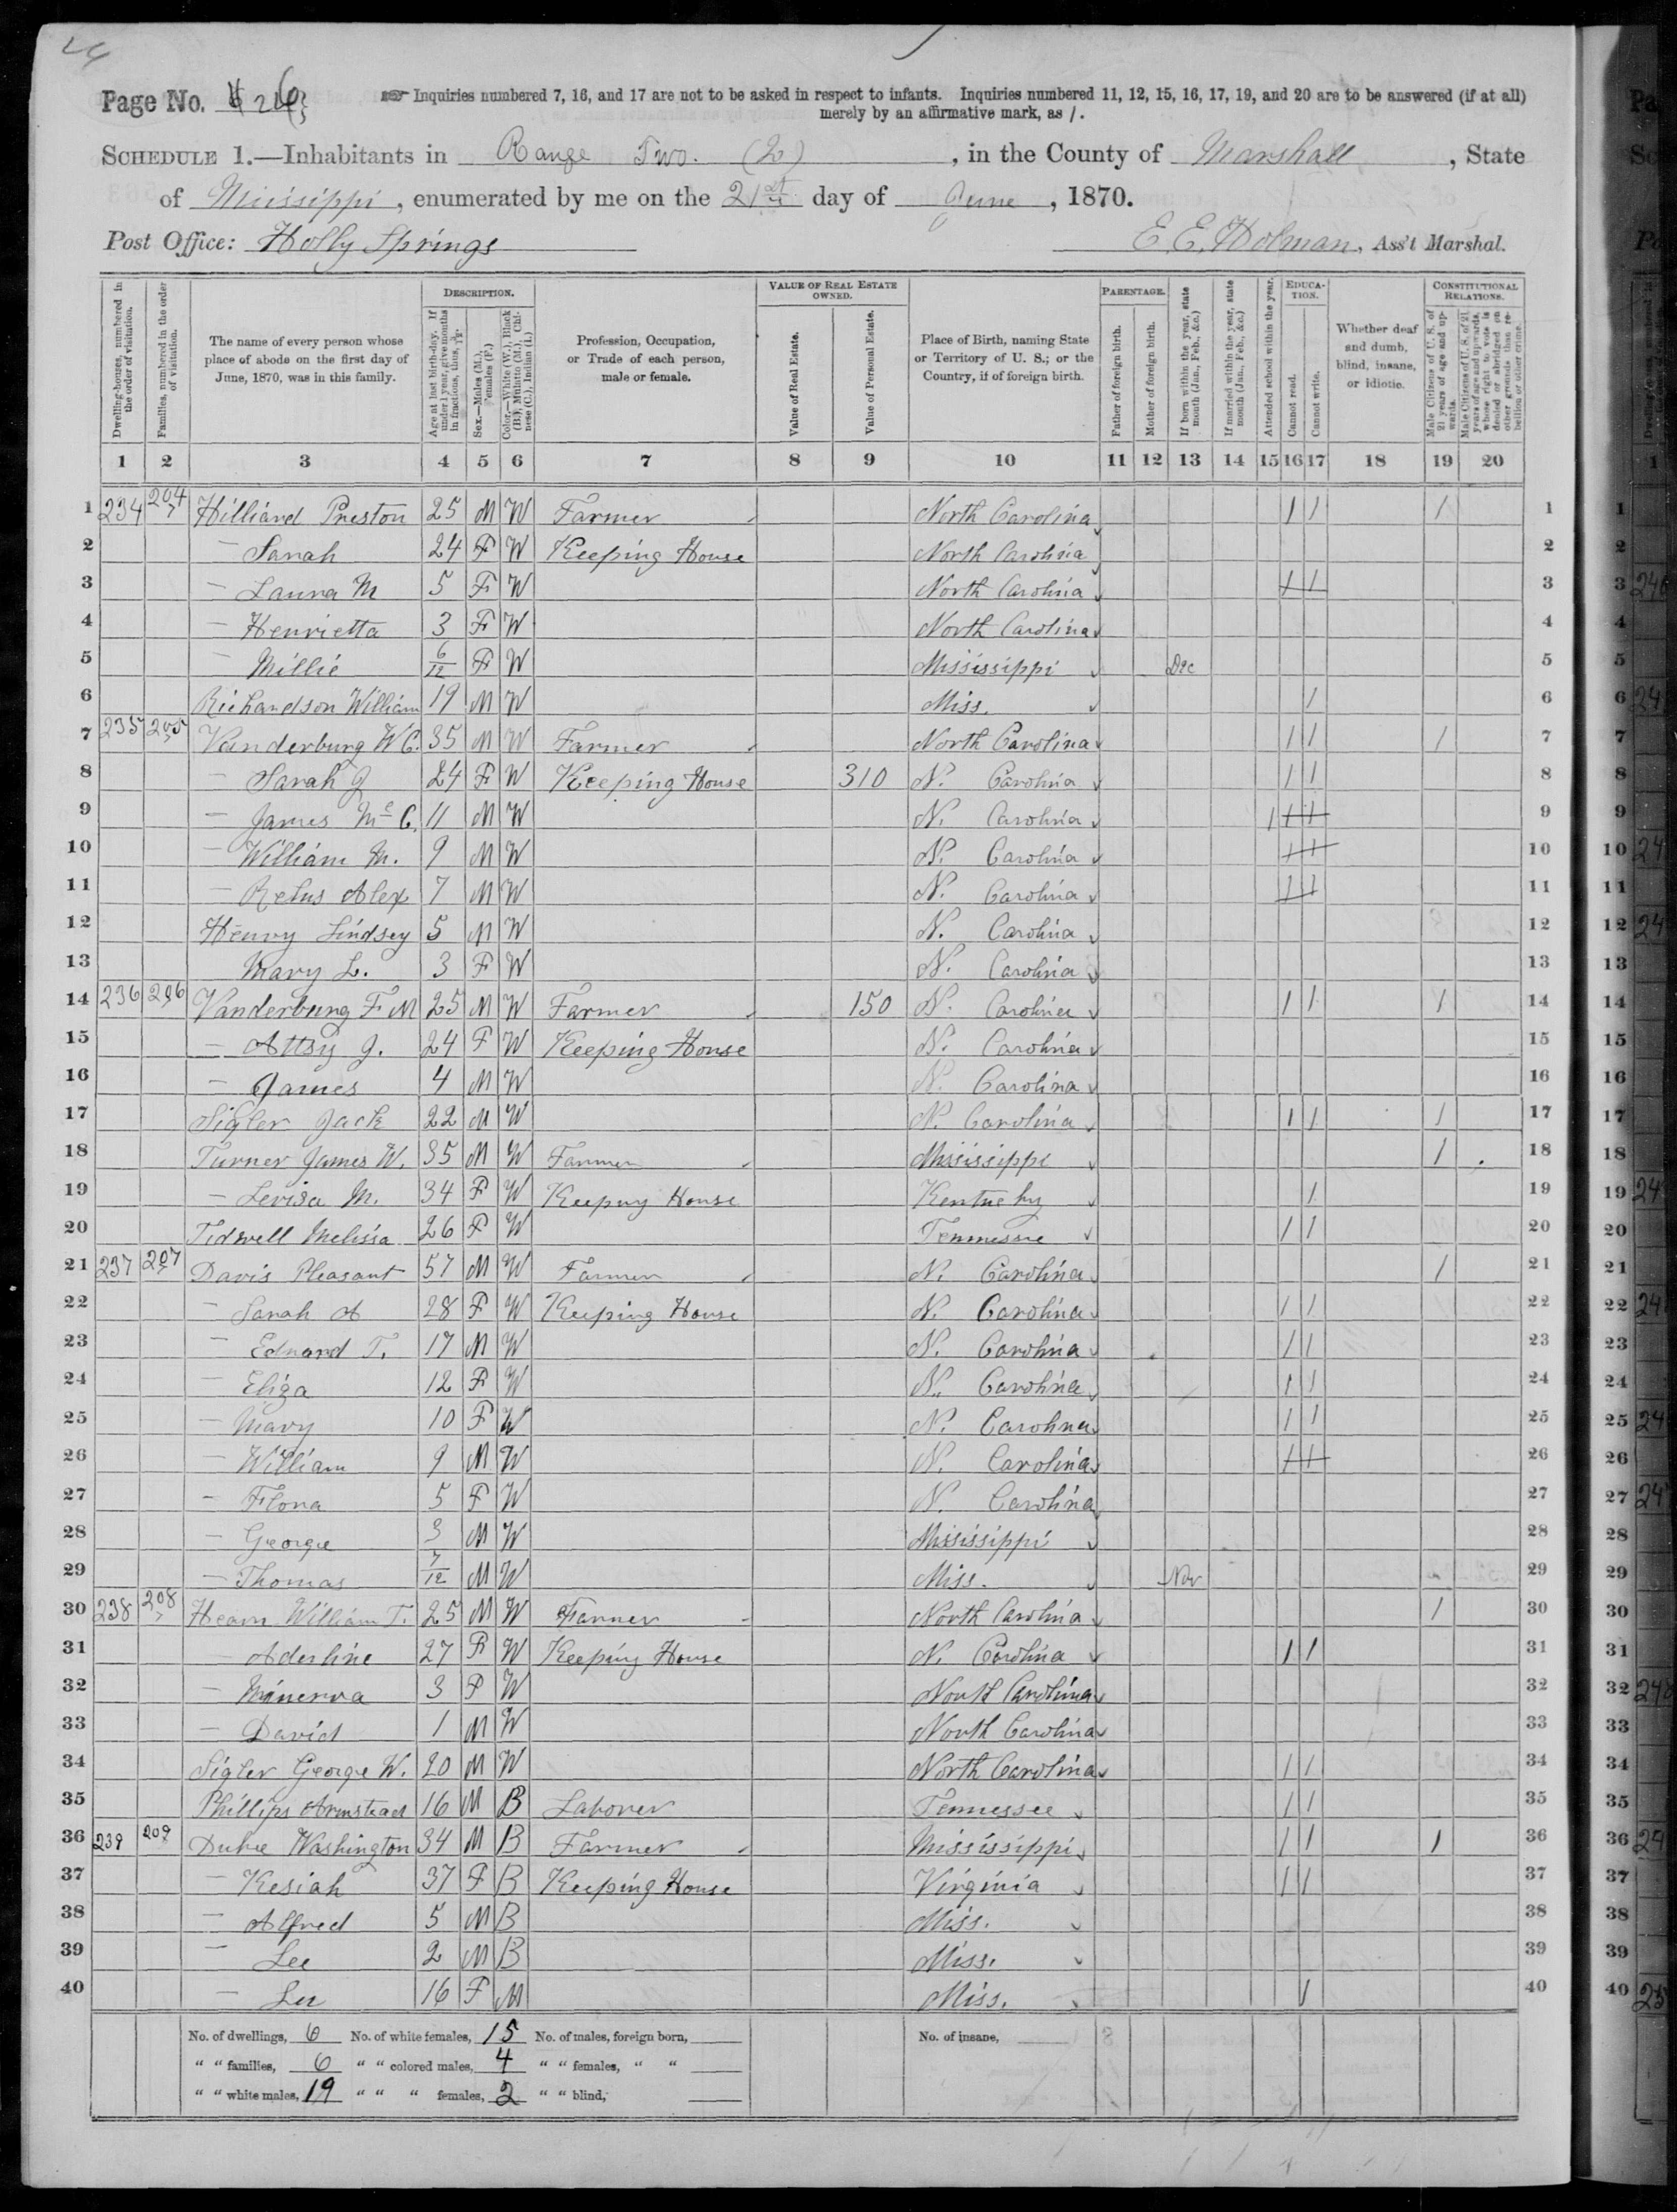 24
Page No. 26
Inquiries numbered 7, 16, and 17 are not to be asked in respect to infants. Inquiries numbered 11, 12, 15, 16, 17, 19, and 20 are to be answered (if at all)
merely by an affirmative mark, as /.
SCHEDULE 1.—Inhabitants in Range Two. (2), in the County of Marshall, State
of Mississippi, enumerated by me on the 21st day of June, 1870.
Post Office: Holly Springs E. E. Holman, Ass't Marshal.
Dwelling-houses, numbered in the order of visitation.
Families, numbered in the order of visitation.
The name of every person whose place of abode on the first day of June, 1870, was in this family.
DESCRIPTION.
Age at last birth-day. If under 1 year, give months in fractions, thus, 3/12.
Sex.—Males (M.), Females (F.)
Color.—White (W.), Black (B.), Mulatto (M.), Chinese (C.), Indian (I.)
Profession, Occupation, or Trade of each person, male or female.
VALUE OF REAL ESTATE OWNED.
Value of Real Estate.
Value of Personal Estate.
Place of Birth, naming State or Territory of U. S.; or the Country, if of foreign birth.
PARENTAGE.
Father of foreign birth.
Mother of foreign birth.
If born within the year, state month (Jan., Feb., &c.)
If married within the year, state month (Jan., Feb., &c.)
Attended school within the year.
EDUCATION.
Cannot read.
Cannot write.
Whether deaf and dumb, blind, insane, or idiotic.
CONSTITUTIONAL RELATIONS.
Male Citizens of U. S. of 21 years of age and upwards.
Male Citizens of U. S. of 21 years of age and upwards, whose right to vote is denied or abridged on other grounds than rebellion or other crime.
1 2 3 4 5 6 7 8 9 10 11 12 13 14 15 16 17 18 19 20
1 234 204 Hilliard Preston 25 M W Farmer North Carolina / / / 1
2 — Sarah 24 F W Keeping House North Carolina 2
3 — Laura M 5 F W North Carolina / / 3
4 — Henrietta 3 F W North Carolina 4
5 — Millie 6/12 F W Mississippi Dec 5
6 Richardson William 19 M W Miss. / 6
7 235 205 Vanderburg W C. 35 M W Farmer North Carolina / / / 7
8 — Sarah J 24 F W Keeping House 310 N. Carolina / / 8
9 — James Mc C. 11 M W N. Carolina / / / 9
10 — William M. 9 M W N. Carolina / / 10
11 — Refus Alex 7 M W N. Carolina / / 11
12 Henry Lindsey 5 M W N. Carolina 12
13 Mary L. 3 F W N. Carolina 13
14 236 206 Vanderburg F. M 25 M W Farmer 150 N. Carolina / / / 14
15 — Attsy J. 24 F W Keeping House N. Carolina 15
16 — James 4 M W N. Carolina 16
17 Sigler Jack 22 M W N. Carolina / / / 17
18 Turner James W. 35 M W Farmer Mississippi / 18
19 — Levisa M. 34 F W Keeping House Kentucky / 19
20 Tidwell Melissa 26 F W Tennessee / / 20
21 237 207 Davis Pleasant 57 M W Farmer N. Carolina / 21
22 — Sarah A 28 F W Keeping House N. Carolina / / 22
23 — Edward T. 17 M W N. Carolina / / 23
24 — Eliza 12 F W N. Carolina / / 24
25 — Mary 10 F W N. Carolina / / 25
26 — William 9 M W N. Carolina / / 26
27 — Flora 5 F W N. Carolina 27
28 — George 3 M W Mississippi 28
29 — Thomas 7/12 M W Miss. Nov 29
30 238 208 Hearn William T. 25 M W Farmer North Carolina / 30
31 — Aderline 27 F W Keeping House N. Carolina / / 31
32 — Minerva 3 F W North Carolina 32
33 — David 1 M W North Carolina 33
34 Sigler George W. 20 M W North Carolina / / 34
35 Phillips Armstead 16 M B Laborer Tennessee / / 35
36 239 209 Duke Washington 34 M B Farmer Mississippi / / / 36
37 — Kesiah 37 F B Keeping House Virginia / / 37
38 — Alfred 5 M B Miss. 38
39 — Lee 2 M B Miss. 39
40 — Lu 16 F M Miss. / 40
No. of dwellings, 6 No. of white females, 15 No. of males, foreign born, No. of insane,
" " families, 6 " " colored males, 4 " " females, " "
" " white males, 19 " " " females, 2 " " blind,